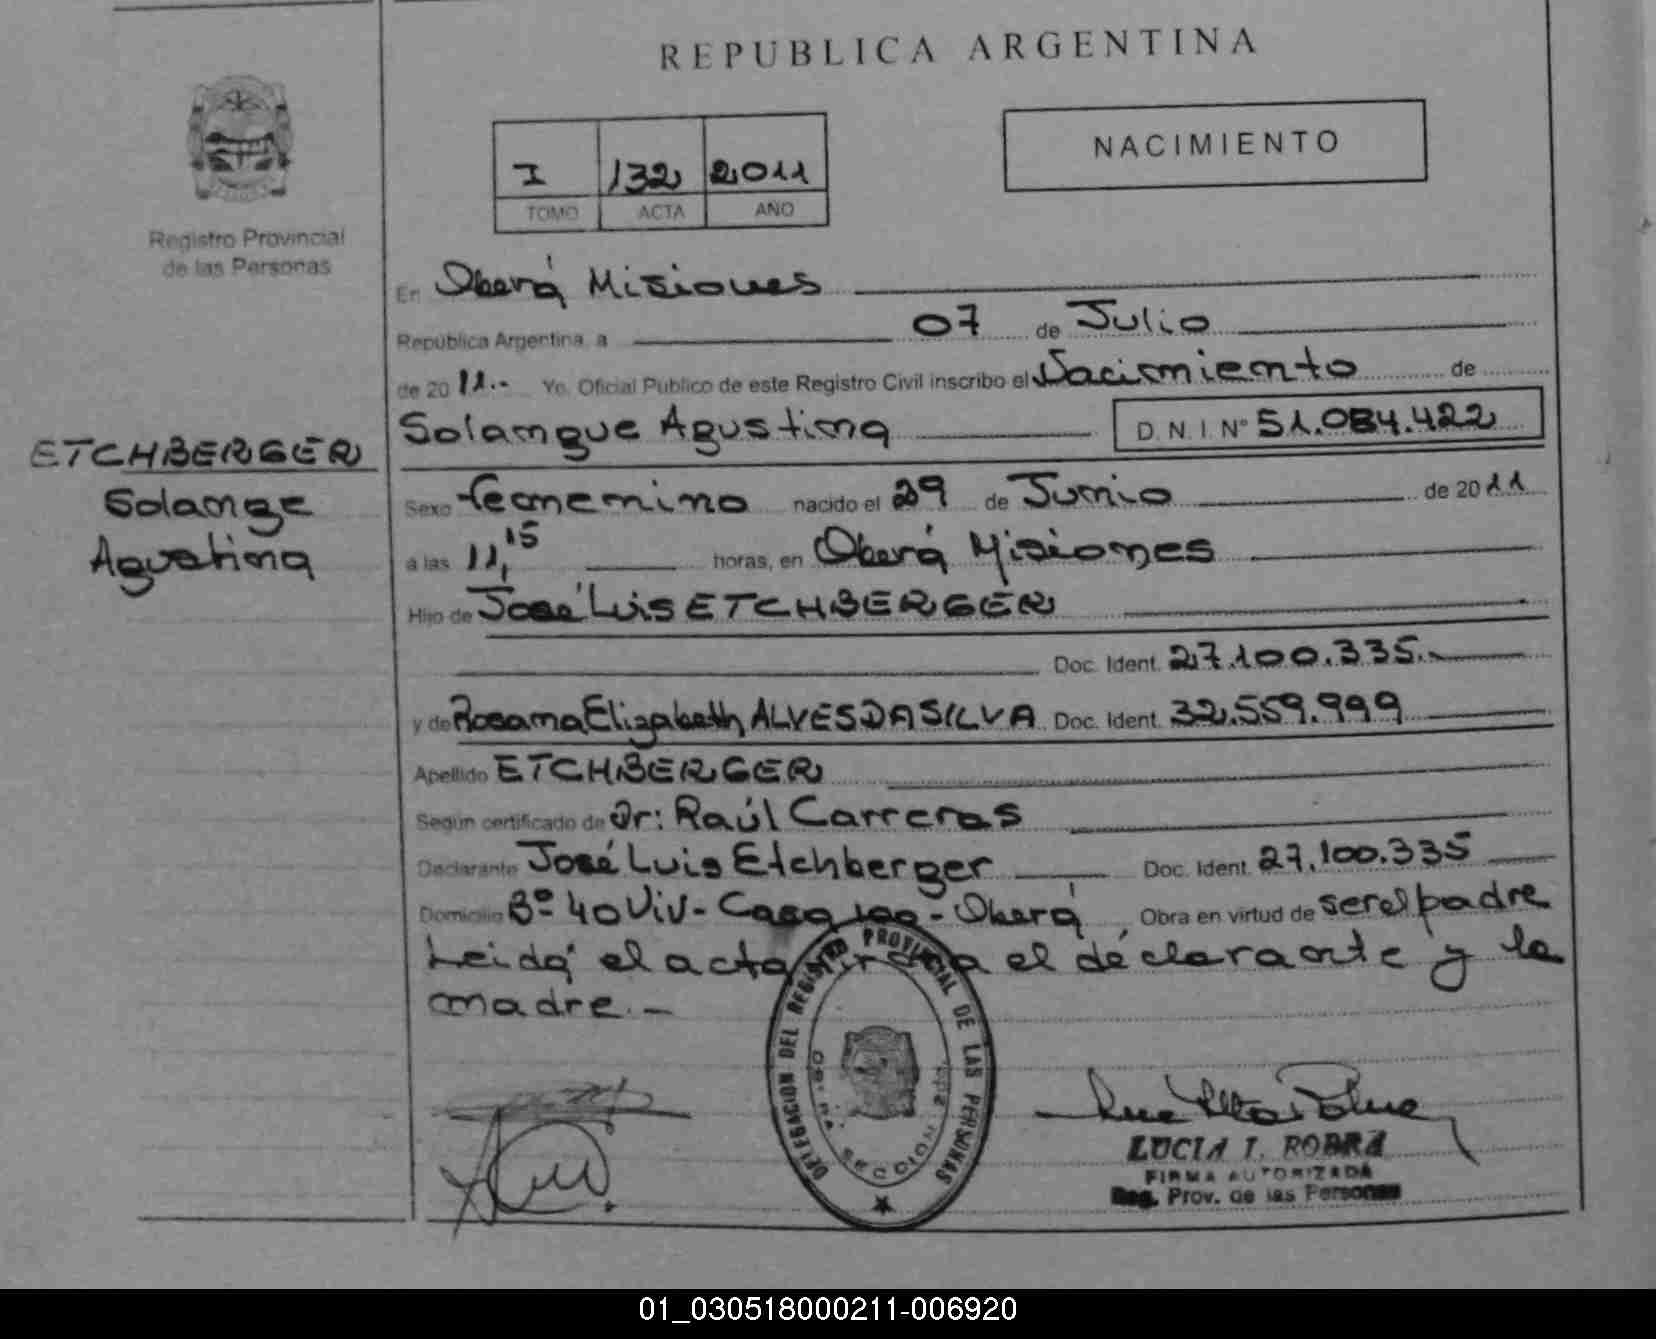 REPUBLICA ARGENTINA
NACIMIENTO
I 132 2011
TOMO ACTA AÑO
Registro Provincial
de las Personas
ETCHBERGER
Solange
Agustina
En Oberá Misiones
República Argentina, a 07 de Julio
de 2011.- Yo, Oficial Público de este Registro Civil inscribo el Nacimiento de
Solangue Agustina D. N. I. Nº 51.084.422
Sexo femenino nacido el 29 de Junio de 2011
a las 11,15 horas, en Oberá Misiones
Hijo de José Luis ETCHBERGER
Doc. Ident. 27.100.335.-
y de Rosana Elizabeth ALVES DA SILVA Doc. Ident. 32.559.999
Apellido ETCHBERGER
Según certificado de Dr: Raúl Carreras
Declarante José Luis Etchberger Doc. Ident. 27.100.335
Domicilio Bº 40 Viv- Casa 100 - Oberá, Obra en virtud de ser el padre
Leida el acta firma el declarante y la
madre.-
DELEGACION DEL REGISTRO PROVINCIAL DE LAS PERSONAS
SECCION
LUCIA I. ROBRA
FIRMA AUTORIZADA
Reg. Prov. de las Personas
01_030518000211-006920